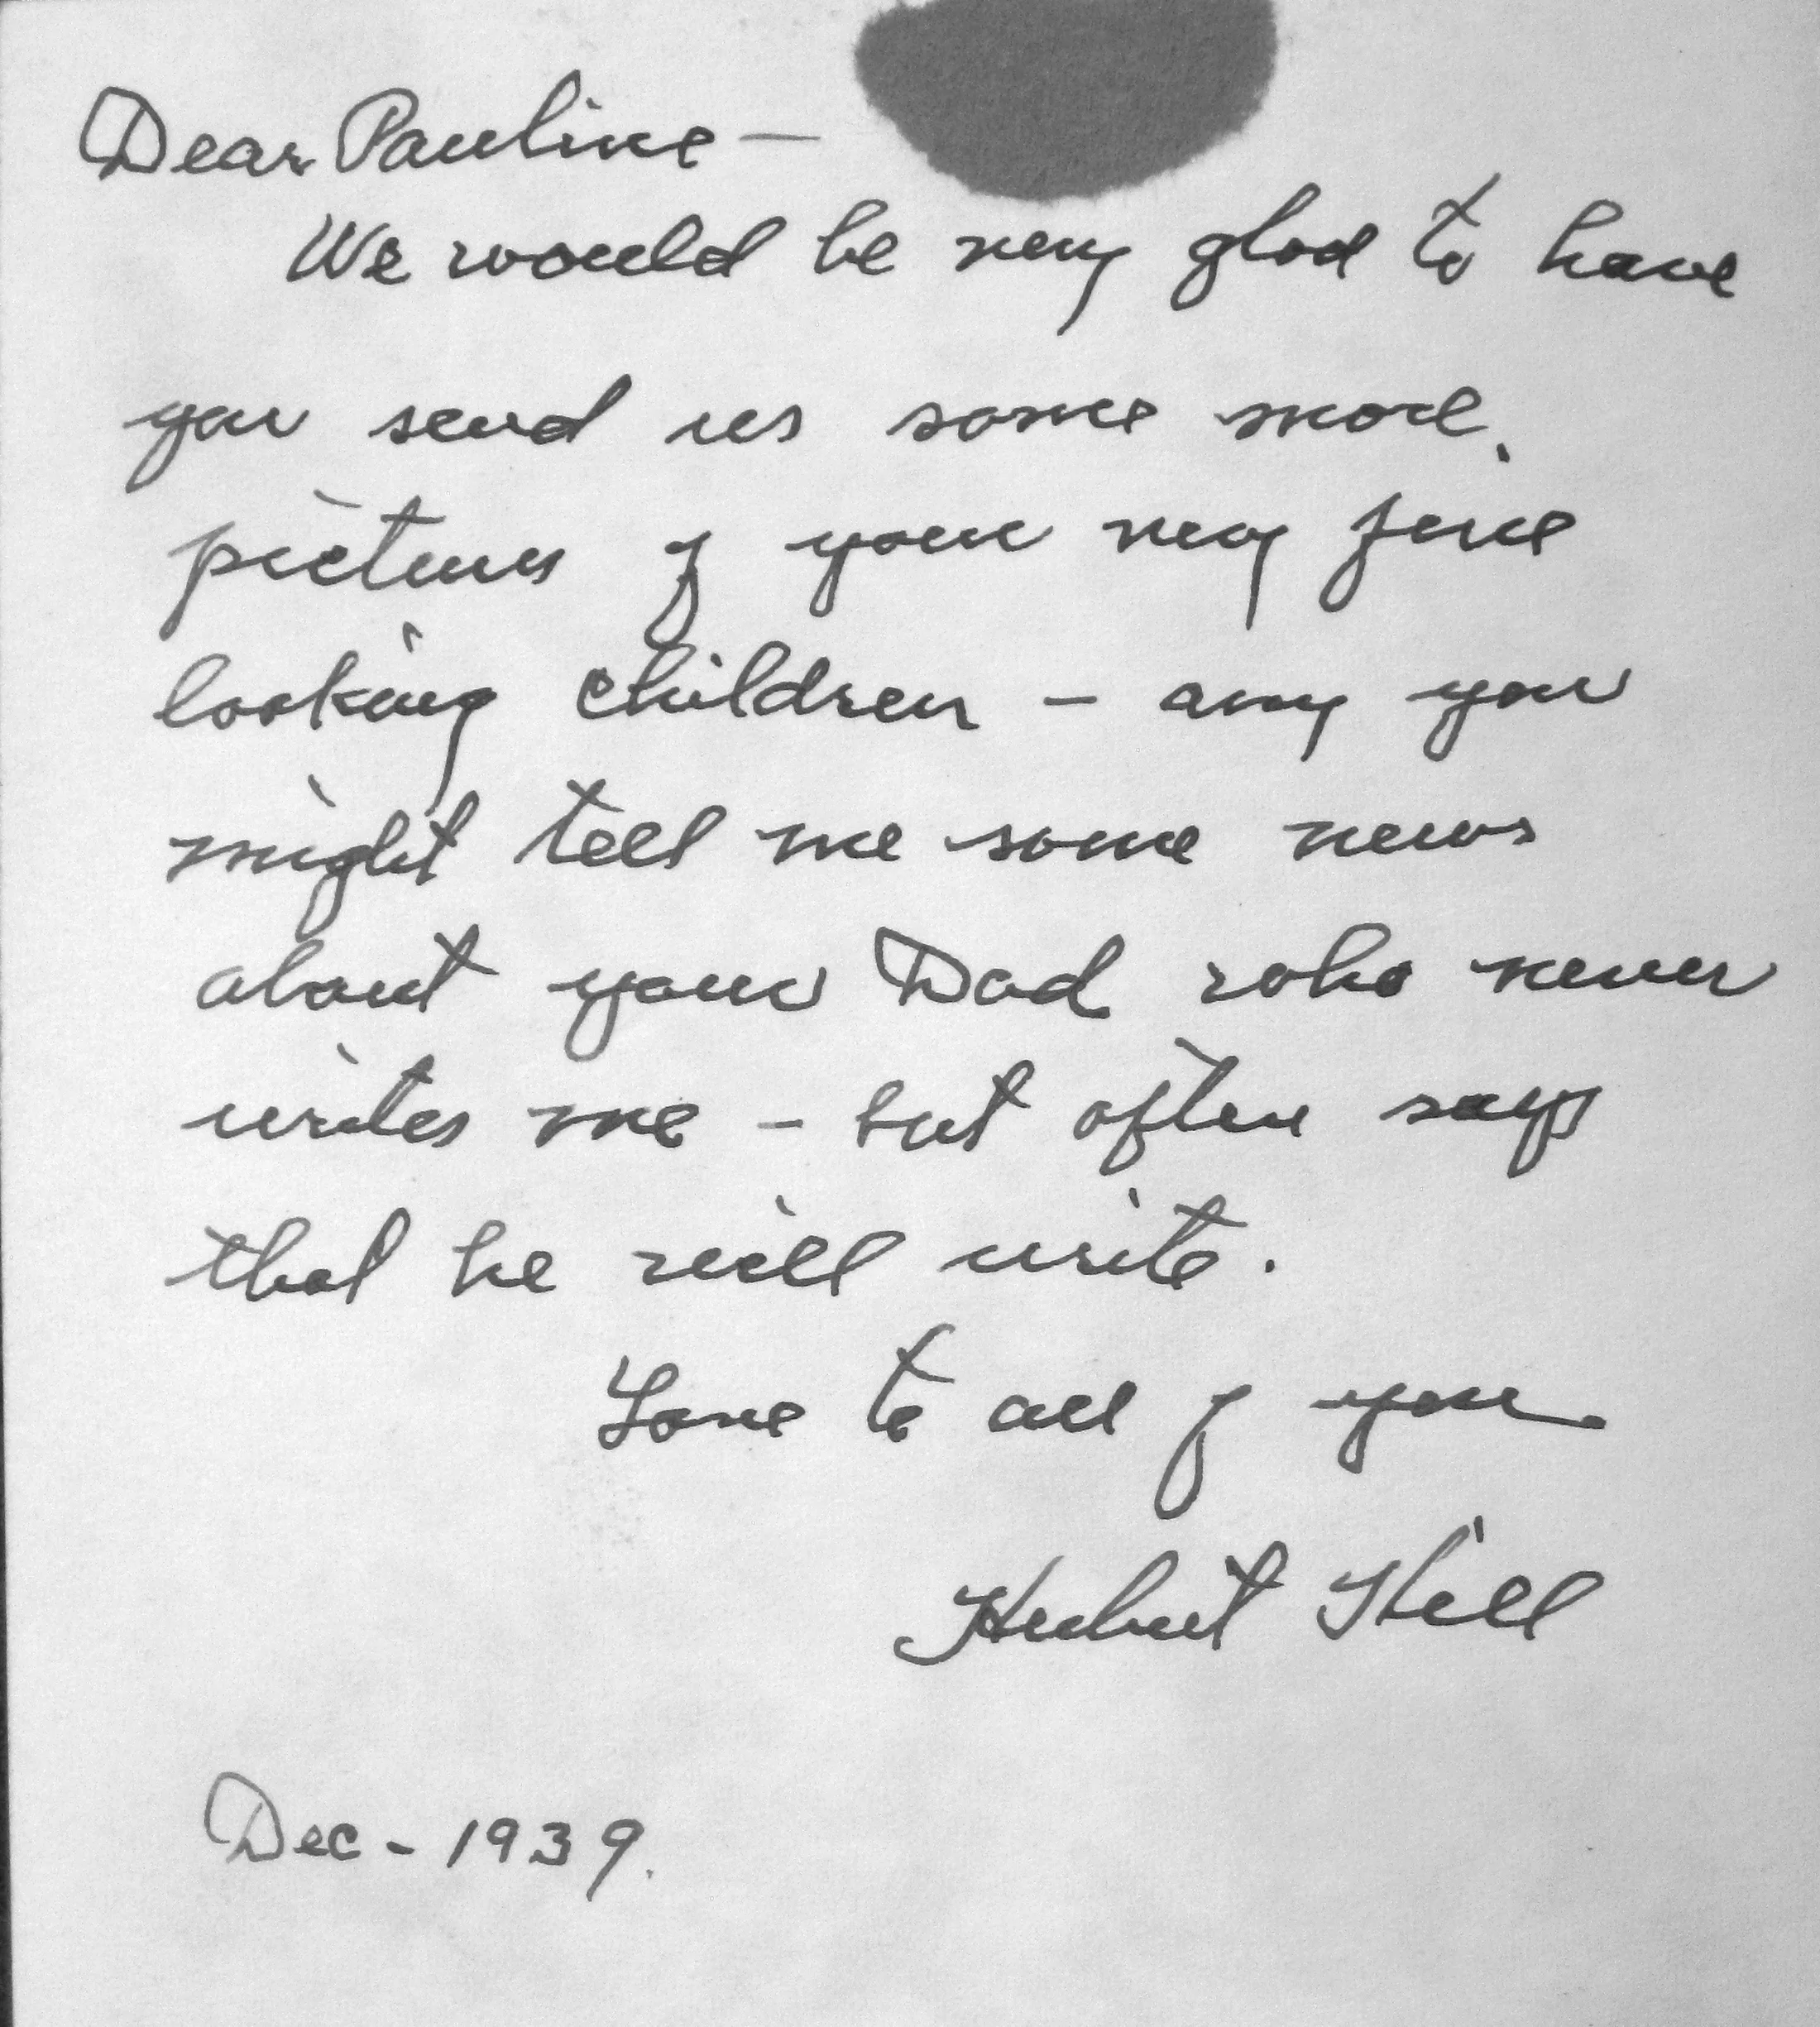 Dear Pauline —
We would be very glad to have
you send us some more
pictures of your very fine
looking children – any you
might tell me some news
about your Dad who never
writes me – but often says
that he will write.
Love to all of you
Hubert Hill
Dec - 1939.